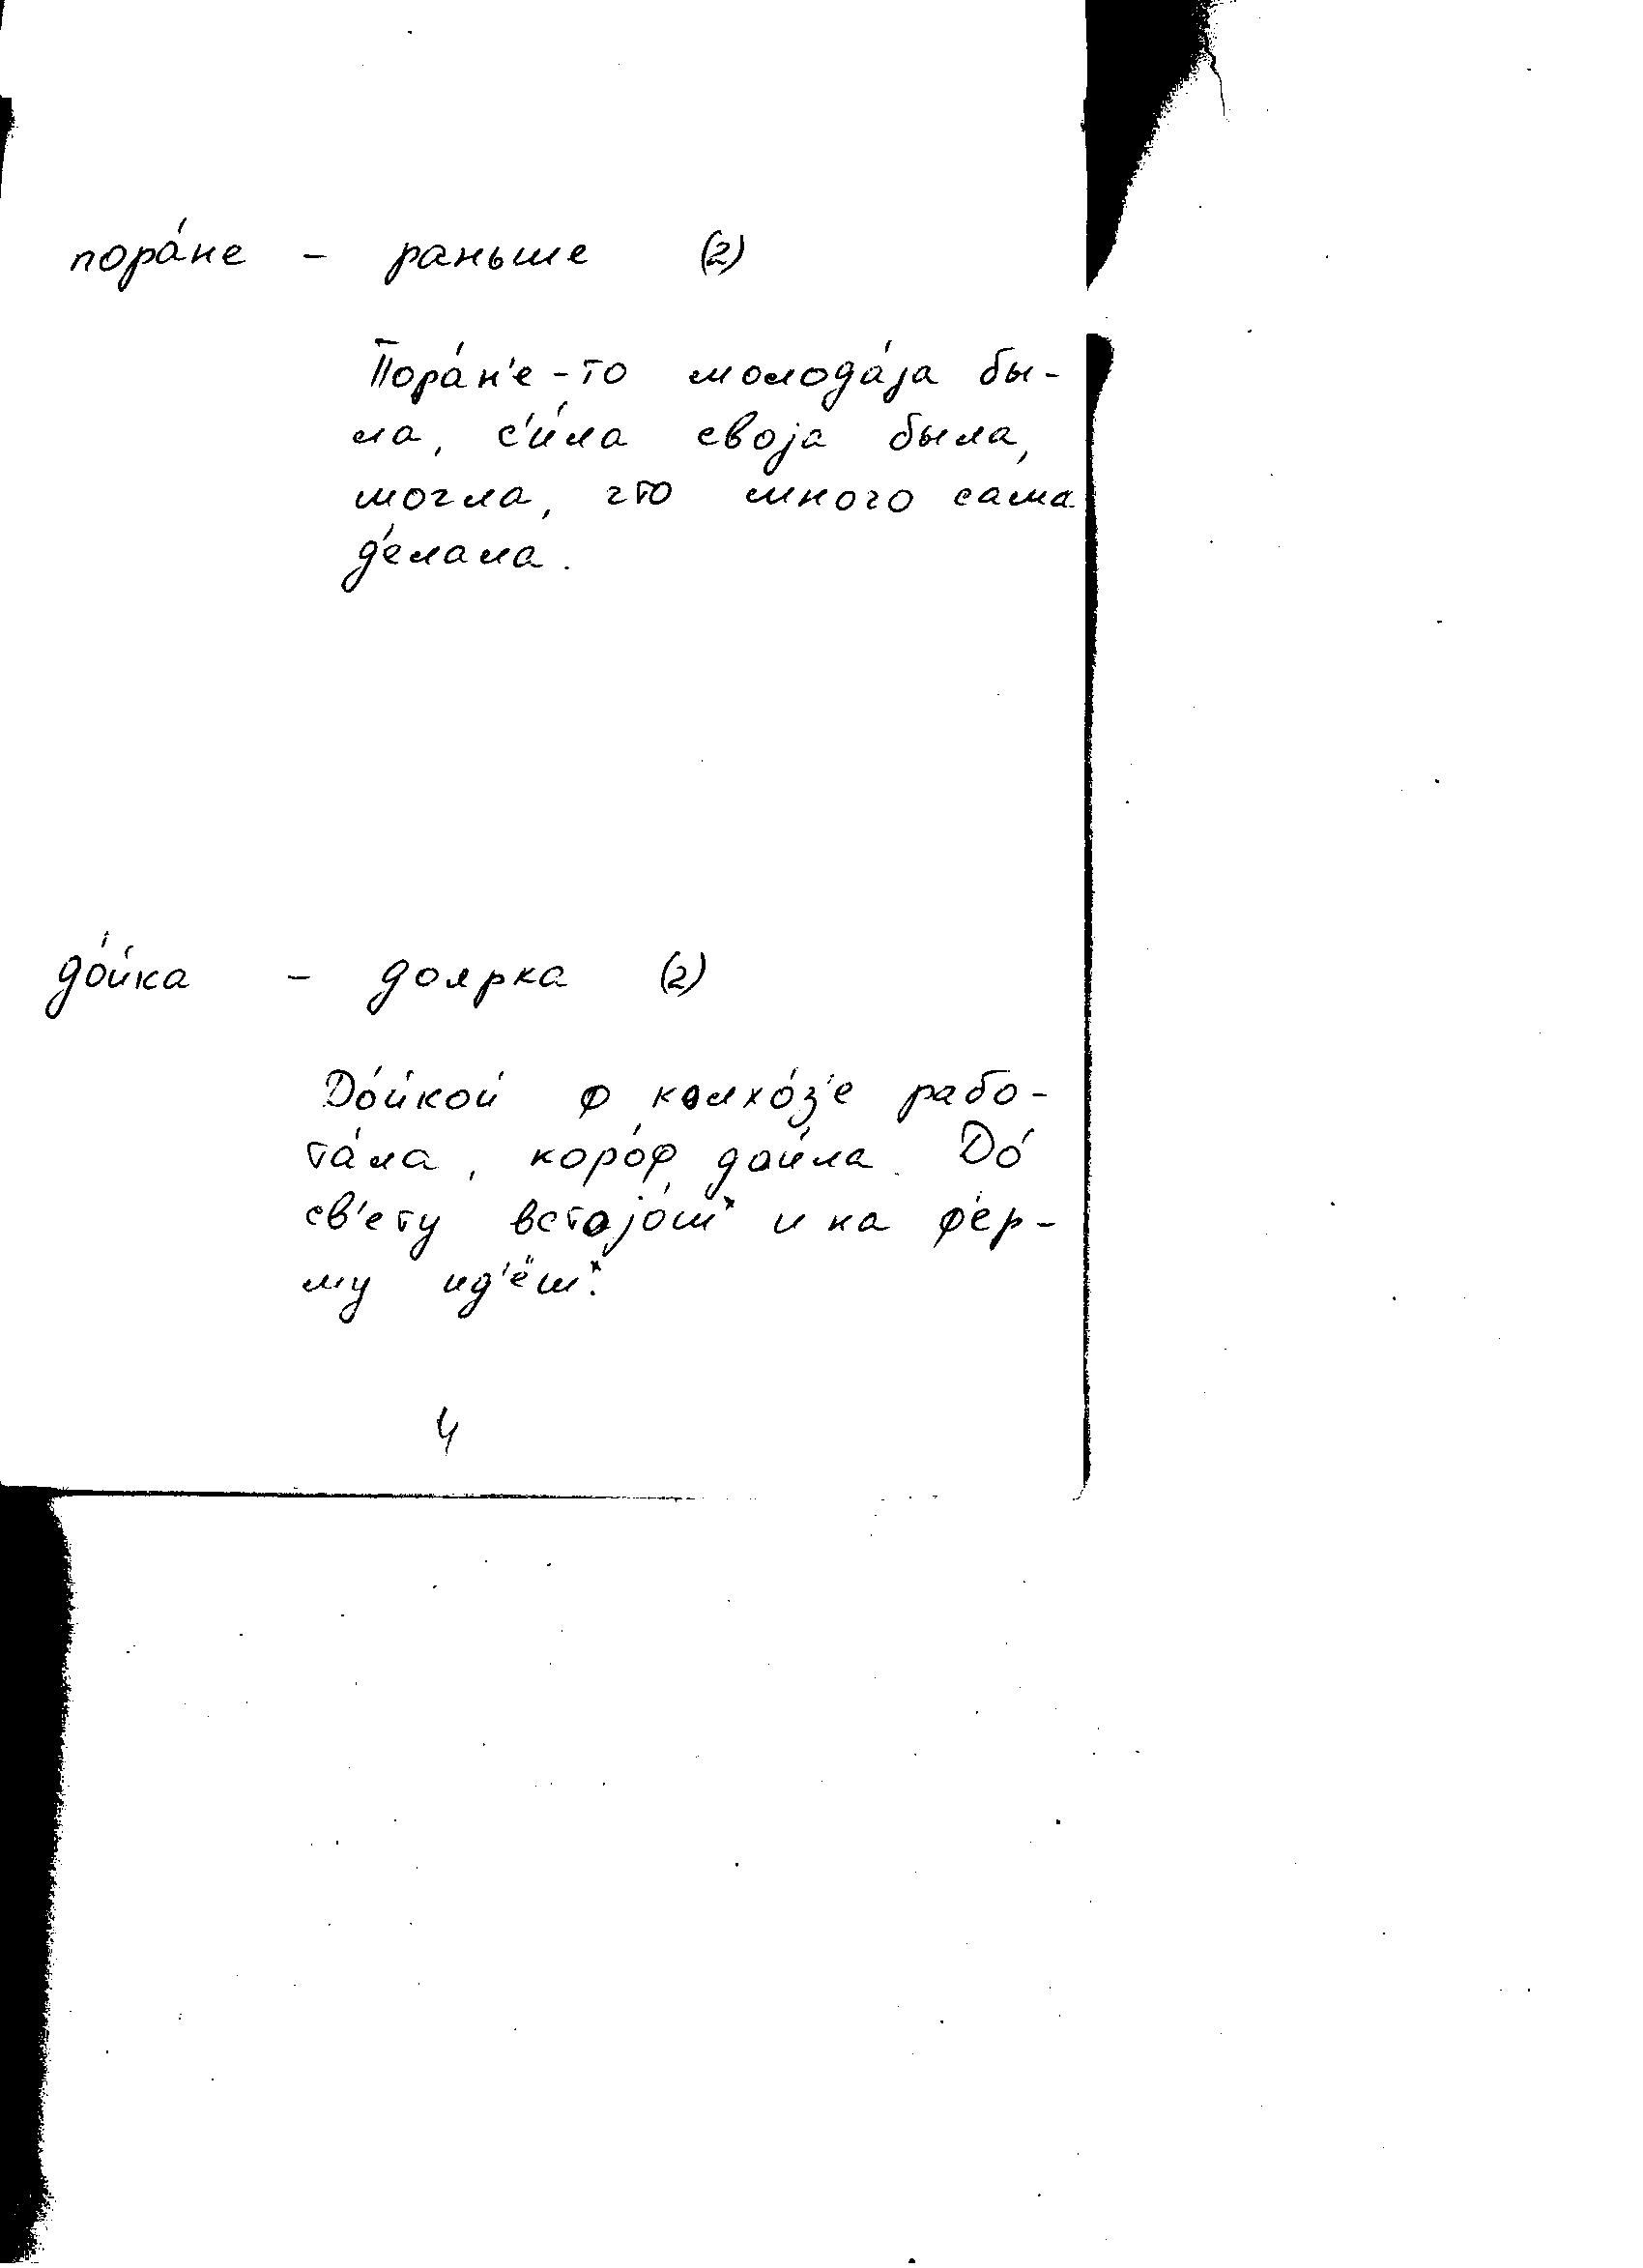 пора́не – раньше (2)
Пора́н'е-то молода́jа бы-
ла, с'и́ла своjа была,
могла, что много сама
д'елала.
до́йка – доярка (2)
До́йкой ф колхо́з'е рабо-
та́ла, коро́ф дои́ла. До́
св'ету встаjо́ш* и на ф'ер-
му ид'ёш*.
4